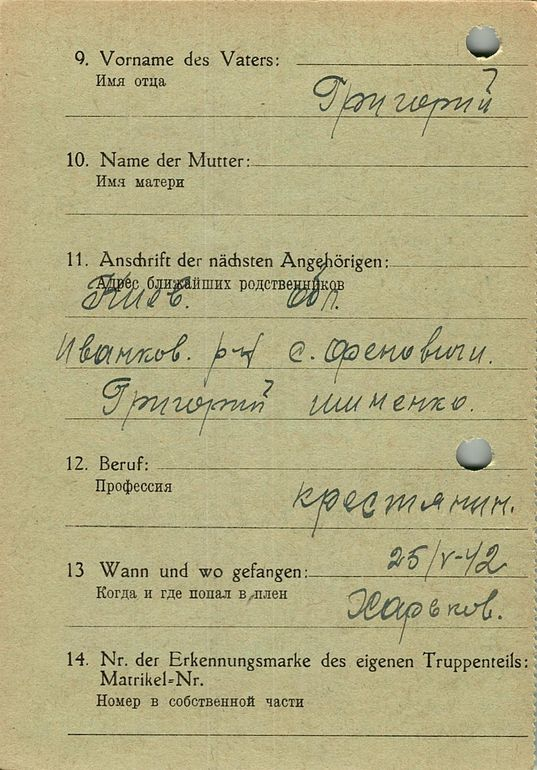 9. Vorname des Vaters:
Имя отца
Григорий
10. Name der Mutter:
Имя матери
11. Anschrift der nächsten Angehörigen:
Адрес ближайших родственников
Киев. обл.
Иванков. р-н с. Феновичи.
Григорий Шименко.
12. Beruf:
Профессия
крестянин.
13 Wann und wo gefangen:
25/V-42
Когда и где попал в плен
Харьков.
14. Nr. der Erkennungsmarke des eigenen Truppenteils:
Matrikel-Nr.
Номер в собственной части